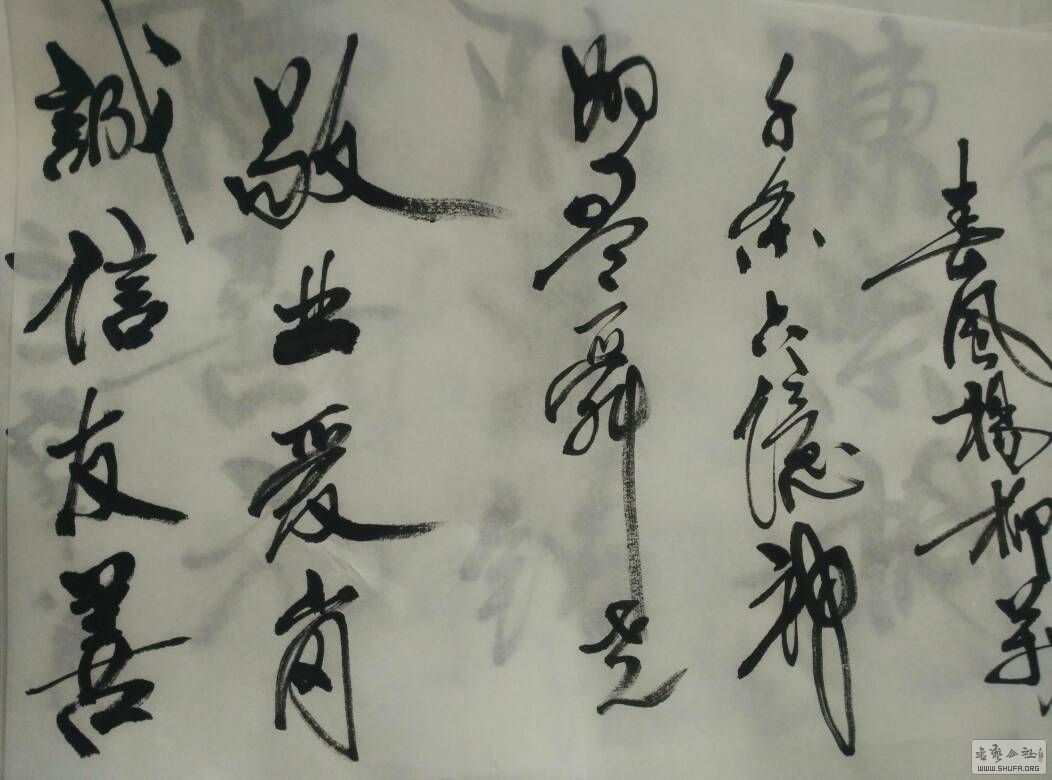 春風楊柳萬
千条六億神
州尽舜尧
敬业爱岗
誠信友善
書藝公社
WWW.SHUFA.ORG